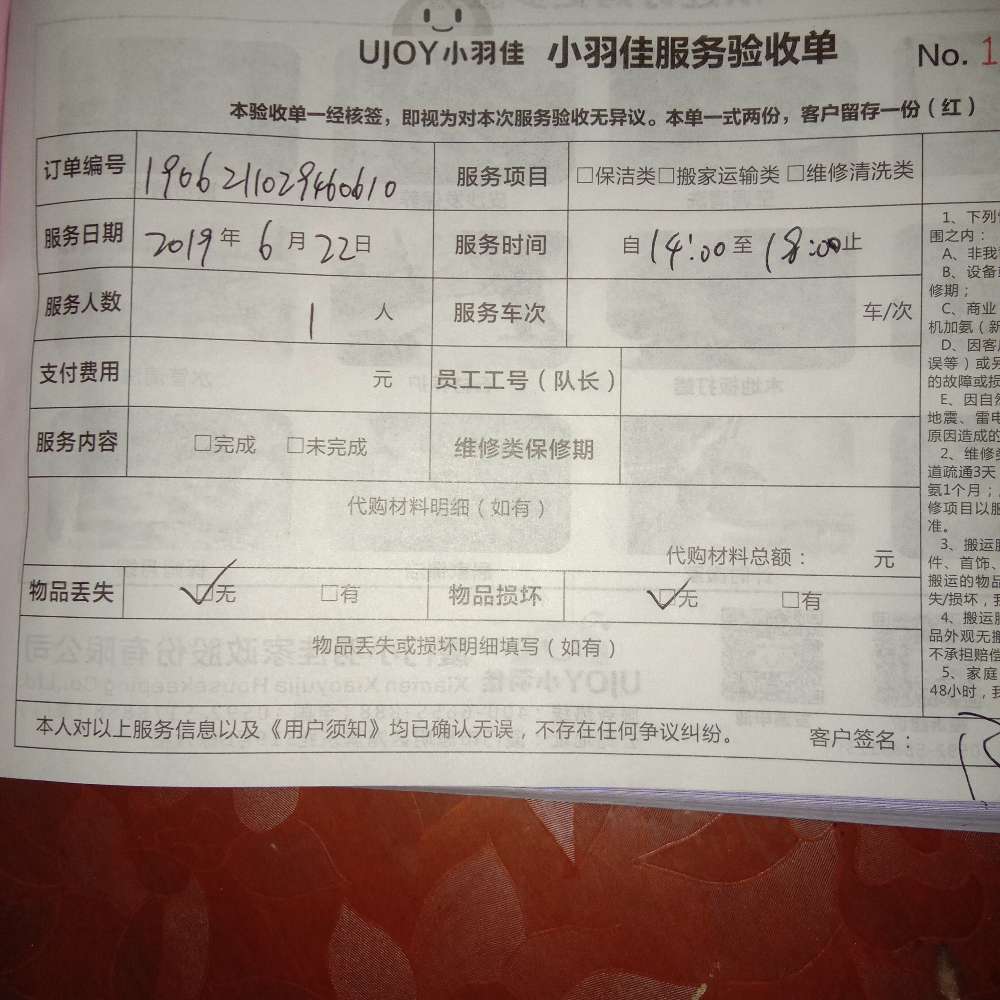 UJOY小羽佳 小羽佳服务验收单 No. 1
本验收单一经核签，即视为对本次服务验收无异议。本单一式两份，客户留存一份（红）
订单编号 1906211029460610 服务项目 □保洁类□搬家运输类 □维修清洗类
服务日期 2019年 6月 22日 服务时间 自 14:00 至 18:00 止
服务人数 1 人 服务车次 车/次
支付费用 元 员工工号（队长）
服务内容 □完成 □未完成 维修类保修期
代购材料明细（如有）
代购材料总额： 元
物品丢失 ☑无 □有 物品损坏 ☑无 □有
物品丢失或损坏明细填写（如有）
本人对以上服务信息以及《用户须知》均已确认无误，不存在任何争议纠纷。 客户签名：
1、下列
围之内：
A、非我
B、设备
修期；
C、商业
机加氨（新
D、因客
误等）或另
的故障或损
E、因自然
地震、雷电
原因造成的
2、维修
道疏通3天
氨1个月；
修项目以服
准。
3、搬运
件、首饰、
搬运的物品
失/损坏，
4、搬运
品外观无搬
不承担赔偿
5、家庭
48小时，